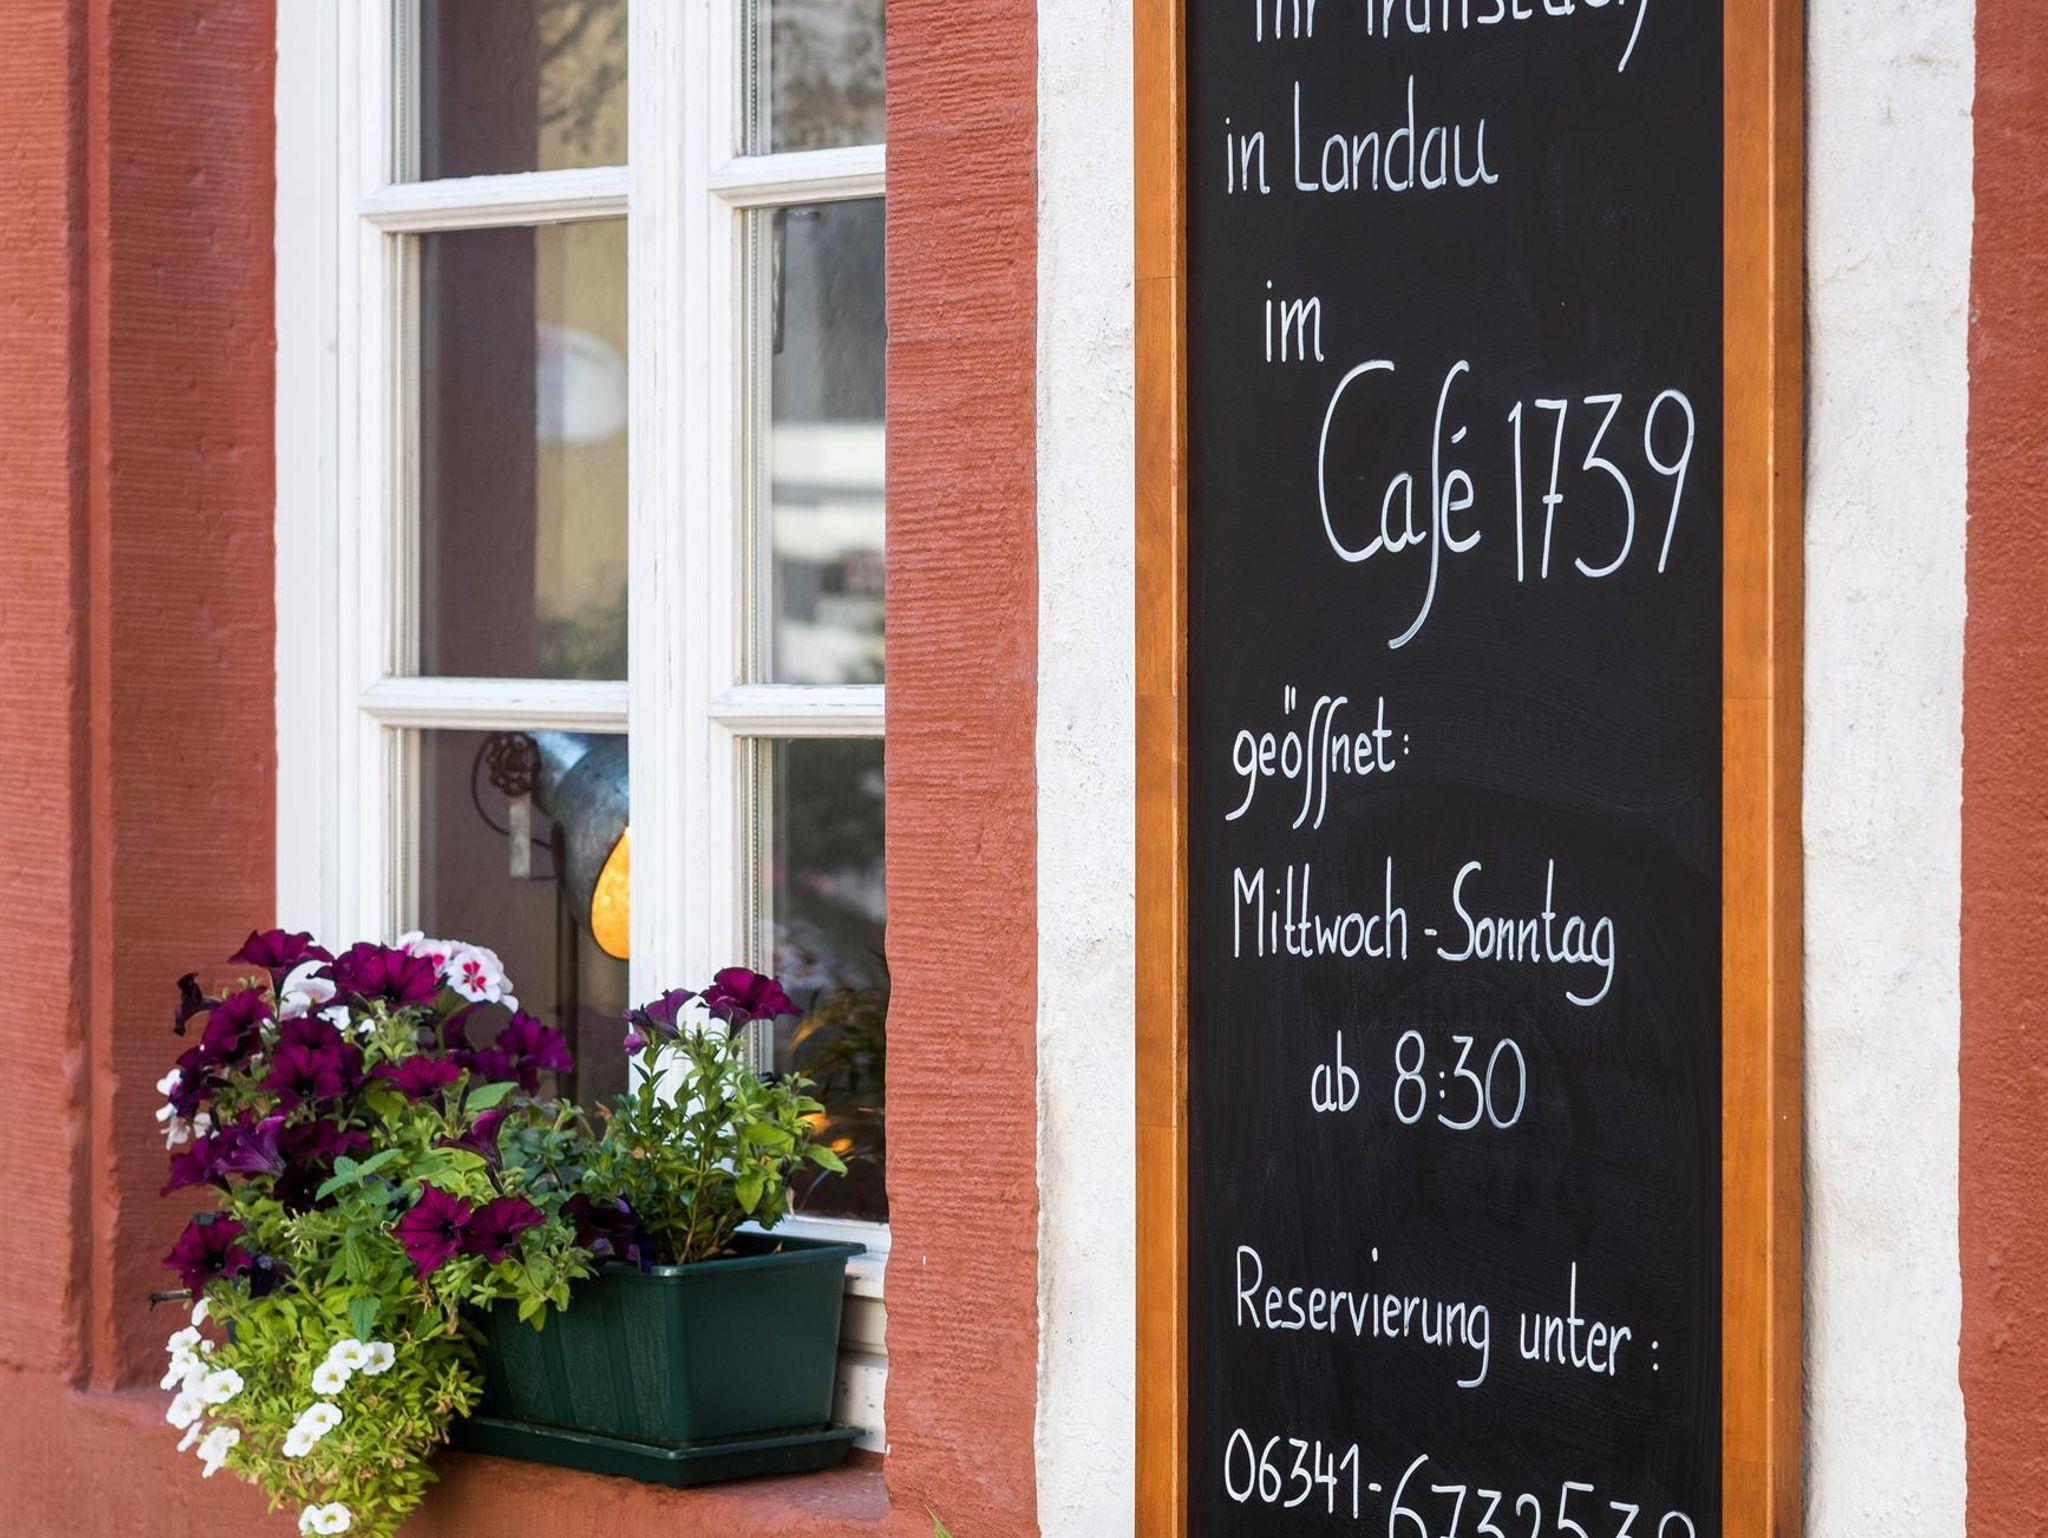 Ihr Frühstück
in Landau
im
Café 1739
geöffnet:
Mittwoch - Sonntag
ab 8:30
Reservierung unter:
06341-